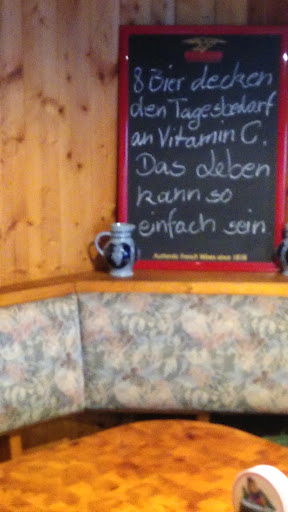 8 Bier decken
den Tagesbedarf
an Vitamin C.
Das Leben
kann so
einfach sein.
Authentic French Wines since 1818